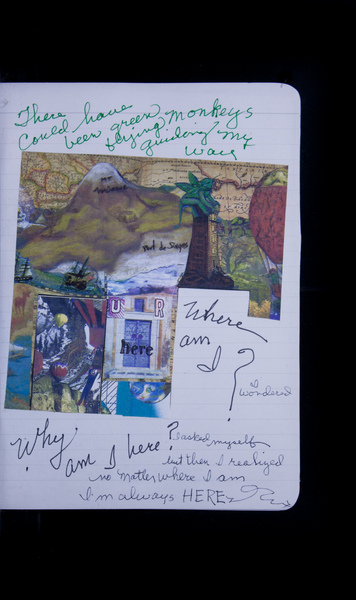 There
could have
been green monkeys
flying, guiding my
way
Port de Sieges
U R
here
Where
am
I ?
I
wondered
Why
am I here?
I asked myself
but then I realized
no matter where I am
I'm always HERE